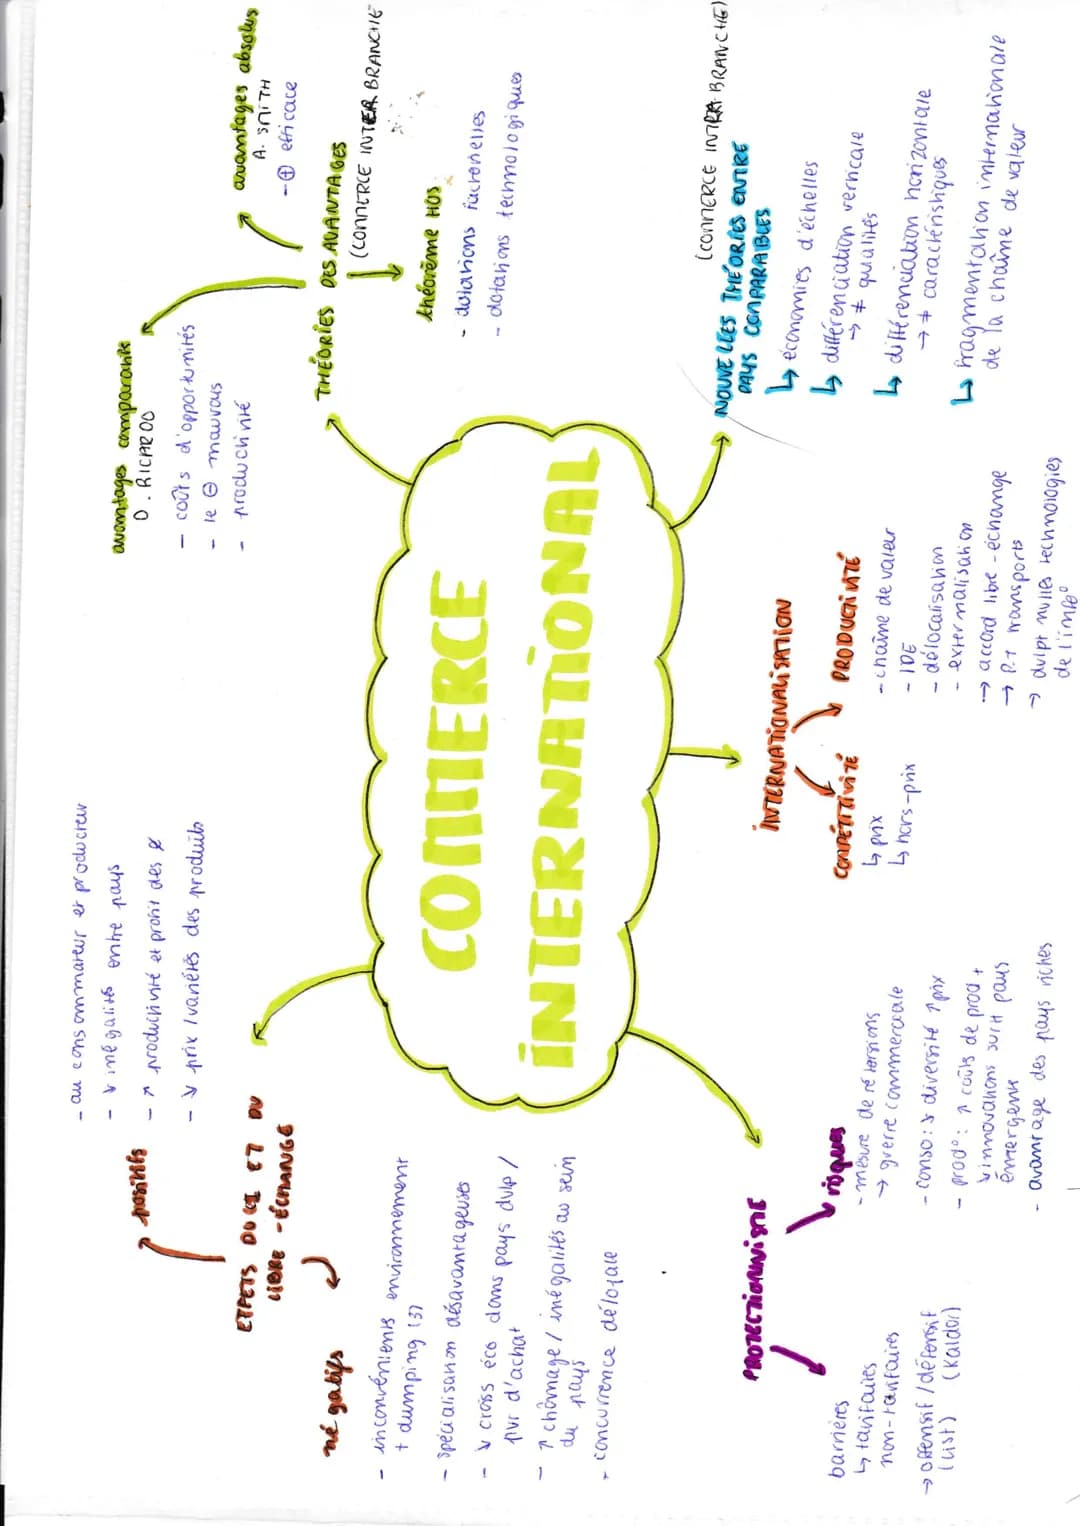 COMMERCE
INTERNATIONAL
THÉORIES DES AVANTAGES
(COMMERCE INTER BRANCHE
avantages absolus
A. SMITH
- ⊕ efficace
avantages comparatifs
D. RICARDO
- coûts d'opportunités
- le ⊖ mauvais
- productivité
théorème HOS
- dotations factorielles
- dotations technologiques
(COMMERCE INTRA BRANCHE)
NOUVELLES THÉORIES ENTRE
PAYS COMPARABLES
↳ économies d'échelles
↳ différenciation verticale
→ ≠ qualités
↳ différenciation horizontale
→ ≠ caractéristiques
↳ fragmentation internationale
de la chaîne de valeur
INTERNATIONALISATION
COMPÉTITIVITÉ
↳ prix
↳ hors-prix
PRODUCTIVITÉ
- chaîne de valeur
- IDE
- délocalisation
- externalisation
→ accord libre-échange
→ P.T transports
→ dvlpt nvlles technologies
de l'info°
PROTECTIONNISME
barrières
↳ tarifaires
non-tarifaires
→ offensif / défensif
(List) (Kaldor)
risques
- mesure de rétorsions
→ guerre commerciale
- conso : ↘ diversité ↗ prix
- prod° : ↗ coûts de prod +
↘ innovations surtt pays
émergents
- avantage des pays riches
EFFETS DU CI ET DU
LIBRE-ÉCHANGE
positifs
- au consommateur et producteur
- ↘ inégalités entre pays
- ↗ productivité et profit des
- ↘ prix / variétés des produits
négatifs
- inconvénients environnement
+ dumping (3)
- spécialisation désavantageuses
- ↘ croiss éco dans pays dvlp /
pvr d'achat
- ↗ chômage / inégalités au sein
du pays
- concurrence déloyale